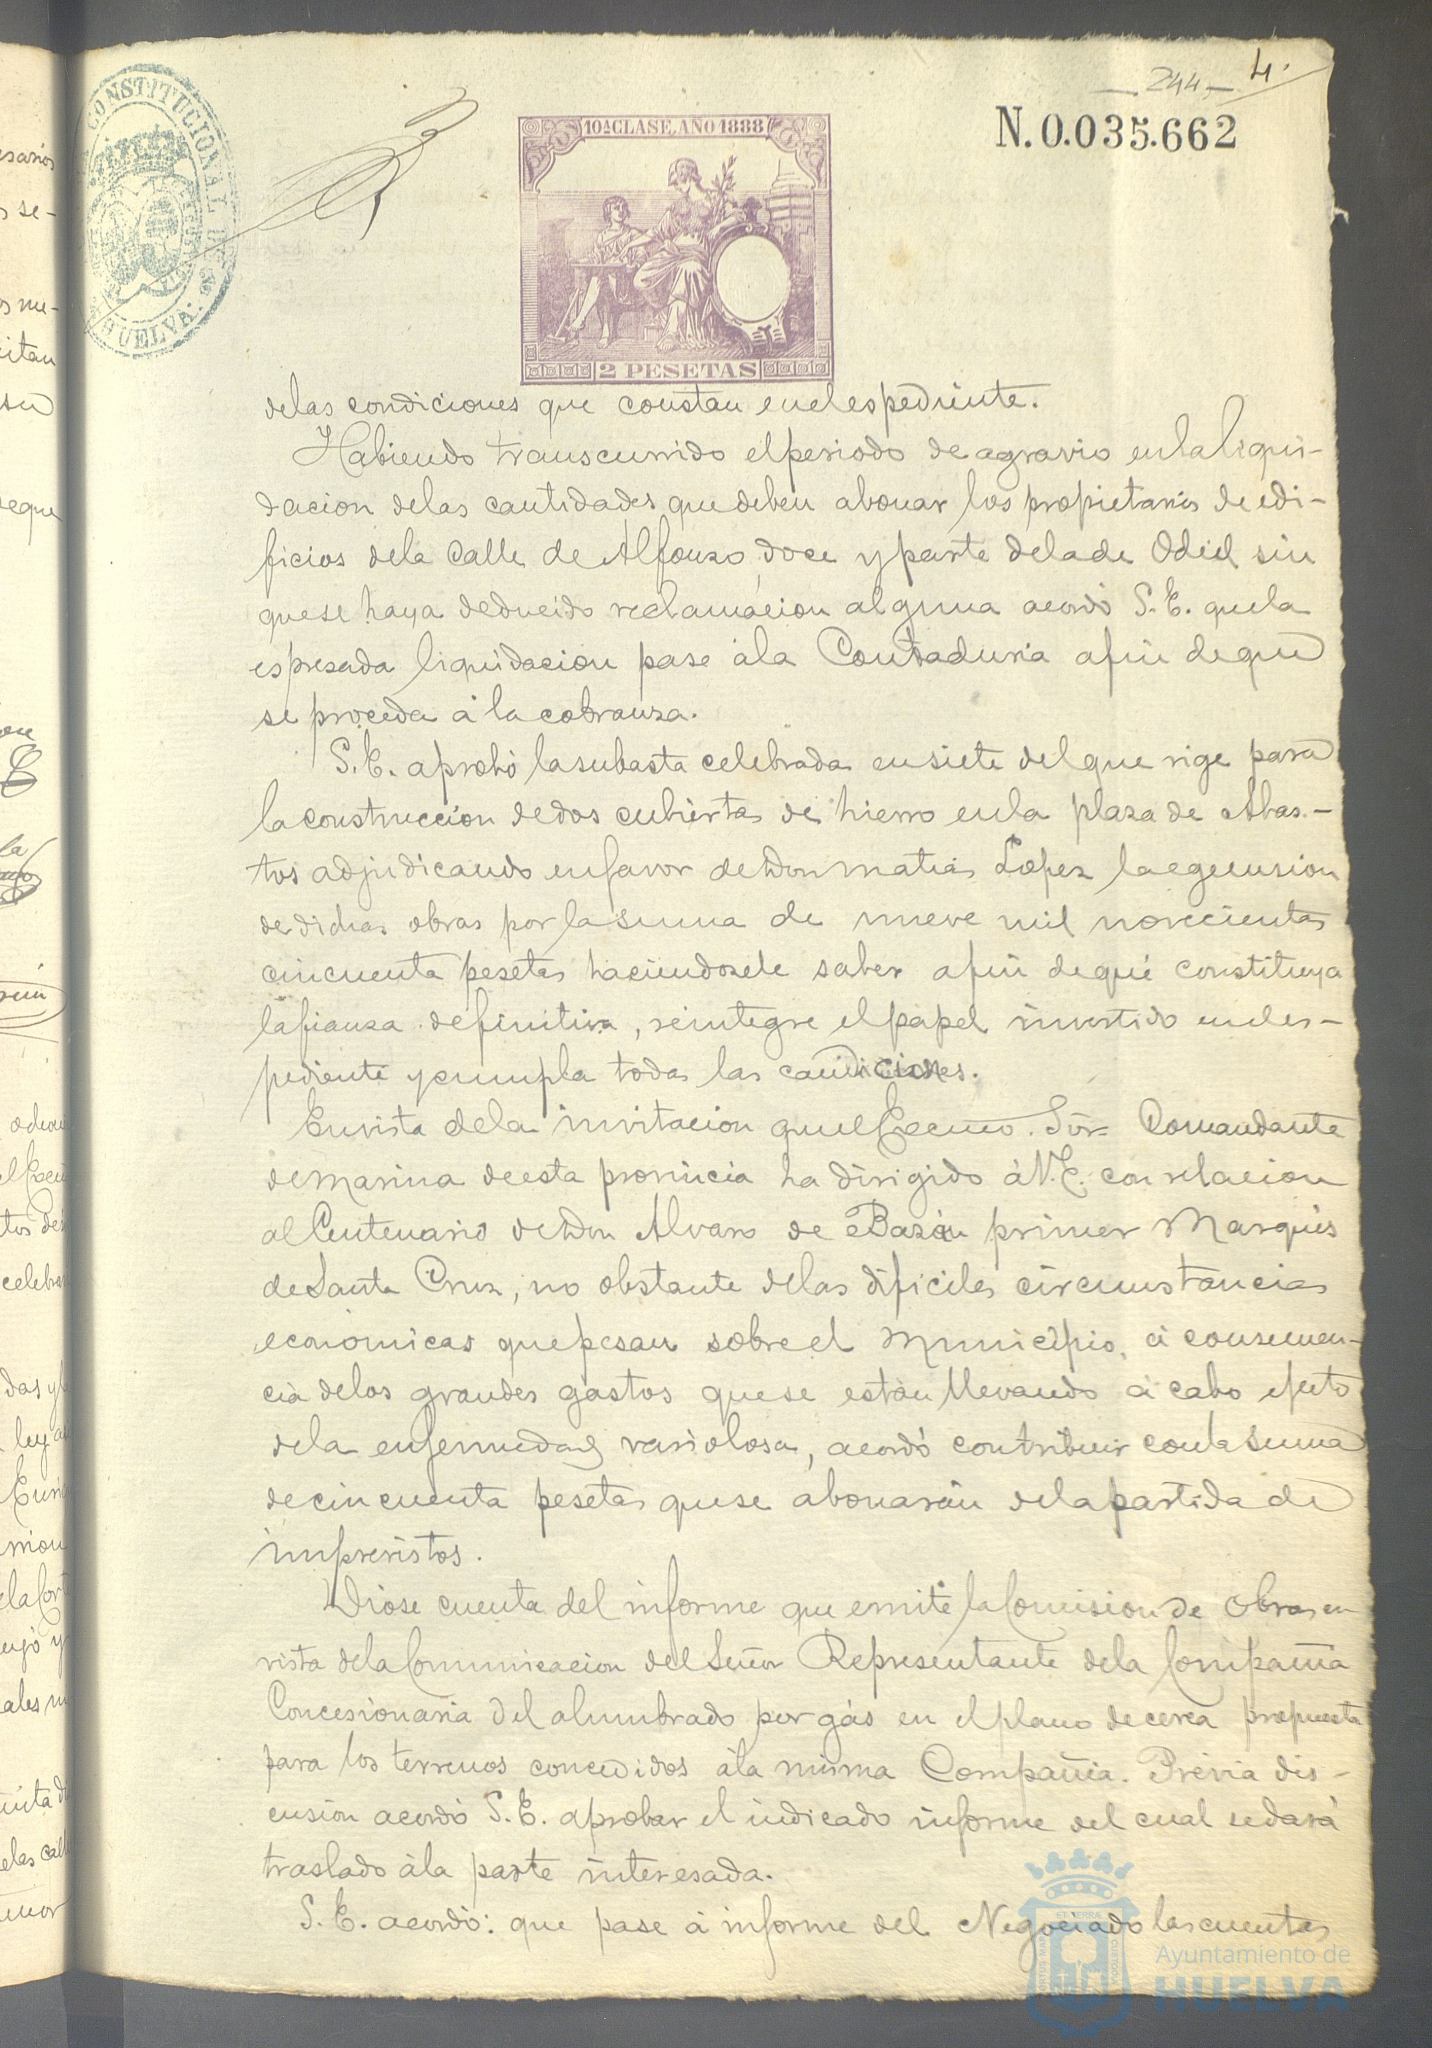 244
4.
N.0.035.662
CONSTITUCIONAL DE
HUELVA
10ª CLASE, AÑO 1888
2 PESETAS
delas condiciones que constan enelespediente.
Habiendo transcurrido elperiodo de agravio enlaliqui-
dacion delas cantidades quedeben abonar los propietarios de edi-
ficios dela Calle de Alfonso doce y parte delade Odiel sin
quese haya deducido reclamacion alguna acordó S.E. quela
espresada liquidacion pase àla Contaduria afin deque
se proceda á la cobranza.
S.E. aprobó lasubasta celebrada ensiete delque rige para
laconstruccion dedos cubiertas de hierro enla plaza de Abas-
tos adjudicando enfavor deDon Matias Lopez laegecusion
dedichas obras por lasuma de nueve mil novecientas
cincuenta pesetas haciendosele saber afin deque constituya
lafianza definitiva, reintegre elpapel invertido eneles-
pediente ycumpla todas las condiciones.
Envista dela invitacion queelExcmo. Sor. Comandante
deMarina deesta provincia ha dirigido áV.E. con relacion
al Centenario deDon Alvaro de Bazán primer Marqués
deSanta Cruz, no obstante delas dificiles circunstancias
económicas quepesan sobre el Municipio, á consecuen-
cia delos grandes gastos quese están llevando á cabo efecto
dela enfermedad variolosa, acordó contribuir conla suma
decincuenta pesetas quese abonarán delapartida de
imprevistos.
Dióse cuenta del informe que emite laComision de Obras en
vista delaComunicacion del Señor Representante dela Compañia
Concesionaria del alumbrado por gás en elplano decerca propuesta
para los terrenos concedidos àla misma Compañia. Previa dis-
cusion acordó S.E. aprobar el indicado informe del cual sedará
traslado àla parte interesada.
S.E. acordó: que pase á informe del Negociado lascuentas
Ayuntamiento de
HUELVA